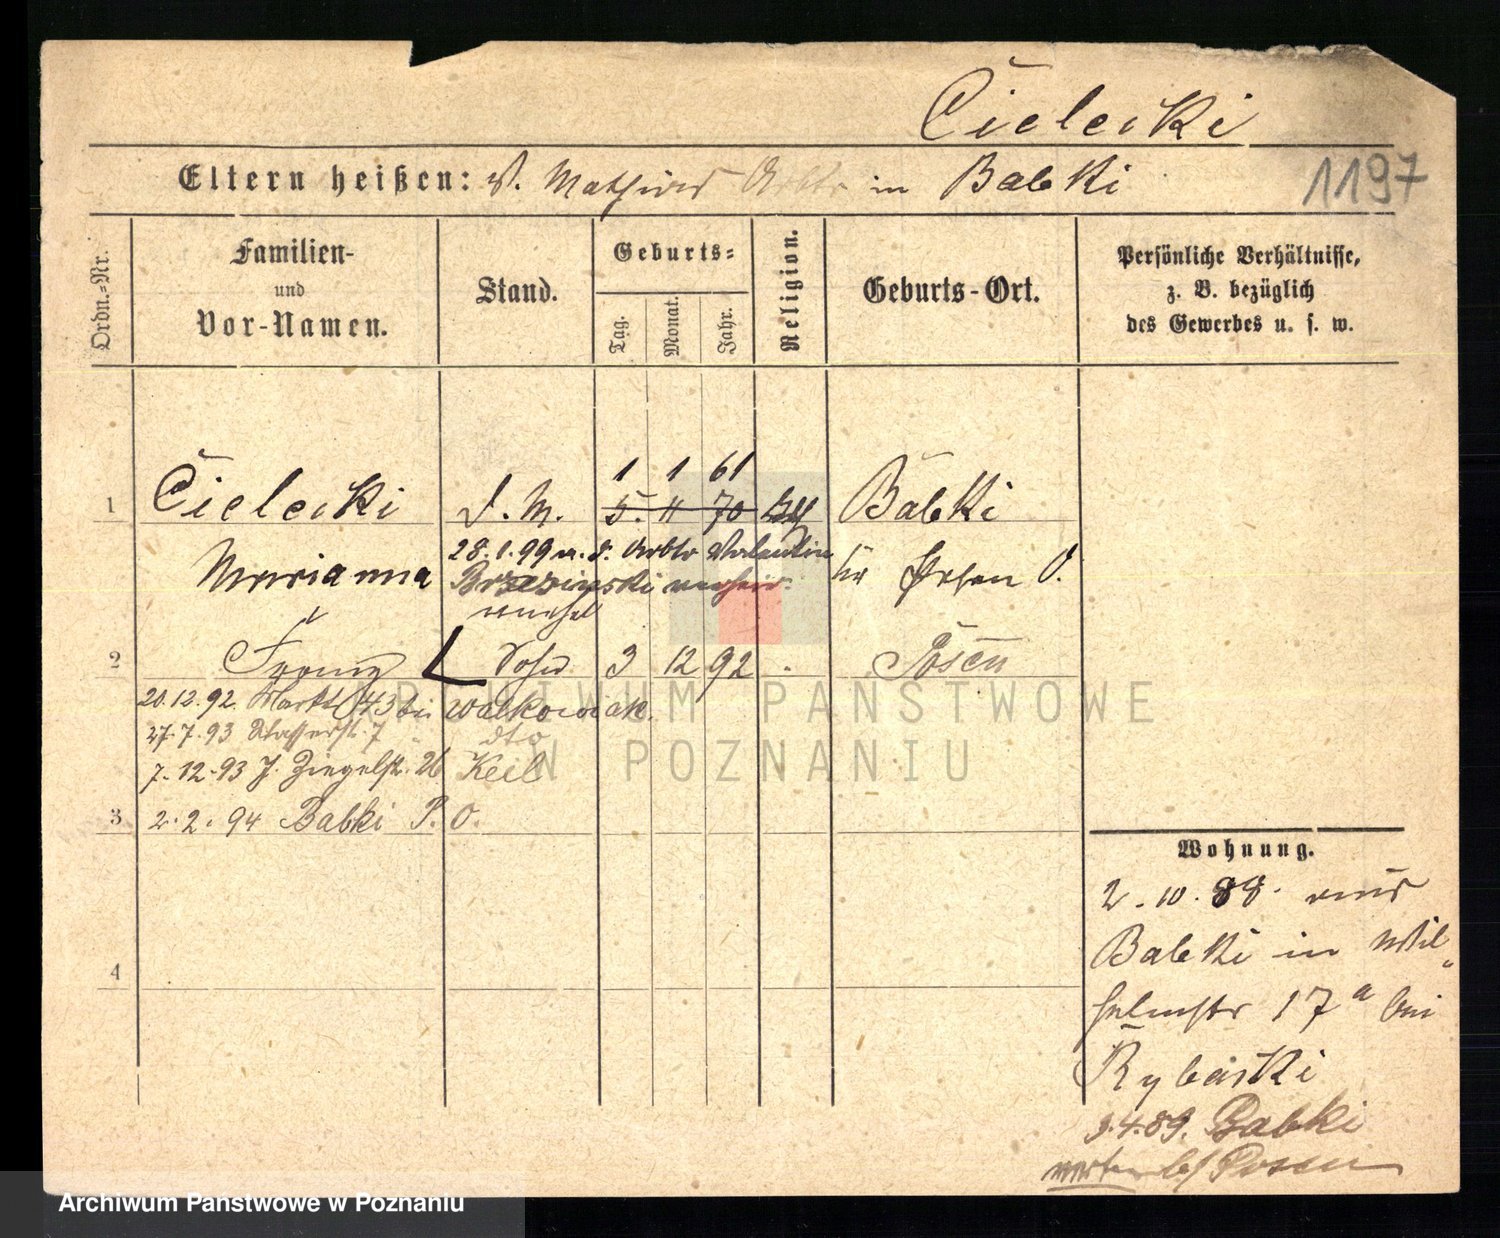 Cielecki
Eltern heißen: V. Mathias Arbtr in Babki
1197
Ordn.-Nr.
Familien-
und
Vor-Namen.
Stand.
Geburts-
Tag.
Monat.
Jahr.
Religion.
Geburts-Ort.
Persönliche Verhältnisse,
z. B. bezüglich
des Gewerbes u. s. w.
1 1 61
1 Cielecki d. M. 5. 11 70 Babki
28.1.99 m. d. Arbtr Valentin
Marianna Brzezinski verheir. Kr Posen O.
unehel
2 Franz Sohn 3 12 92 Posen
20.12.92. Markt 43 bei Walkowiak.
27.7.93 7 dto
7.12.93 J. Ziegelstr. 26 Keil
3 2.2.94 Babki P. O.
4
Wohnung.
2.10.88. aus
Babki in Wil-
helmstr 17a bei
Rybaski
3.4.89. Babki
b/Posen
ARCHIWUM PAŃSTWOWE
W POZNANIU
Archiwum Państwowe w Poznaniu